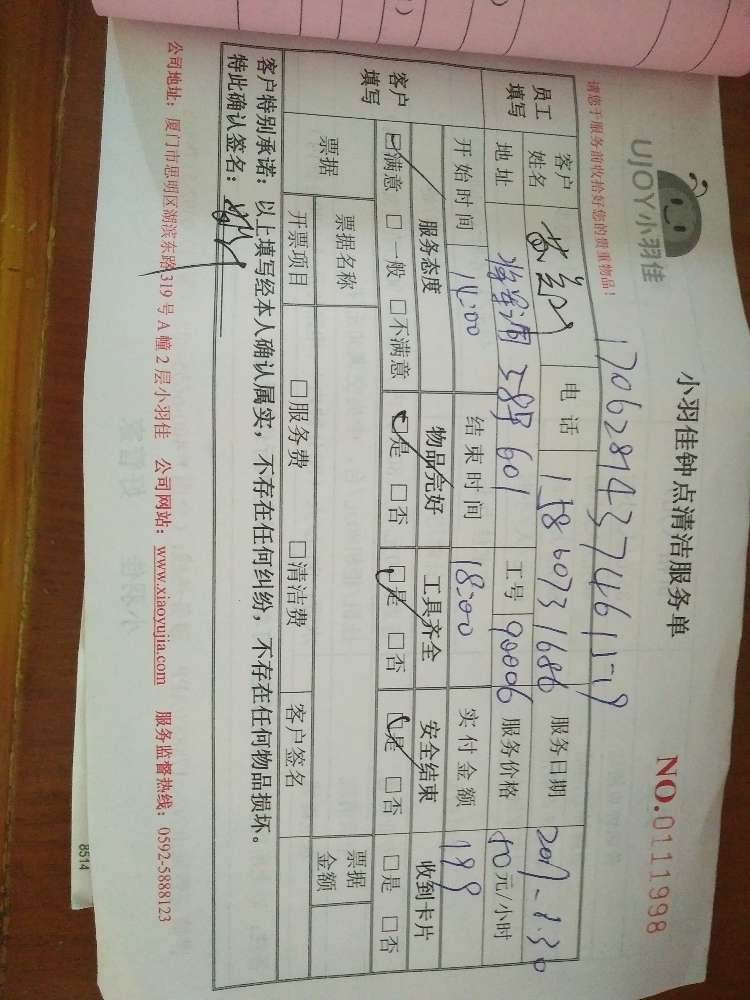 UJOY小羽佳
小羽佳钟点清洁服务单
NO.0111998
请您于服务前收拾好您的贵重物品!
员工填写
客户姓名
电话
服务日期 2017-8.30
地址 585 601
工号 90006
服务价格 50元/小时
开始时间 14:00
结束时间 18:00
实付金额 199
客户填写
服务态度 物品完好 工具齐全 安全结束 收到卡片
☑满意 □一般 □不满意 ☑是 □否 ☑是 □否 ☑是 □否 □是 □否
票据 票据名称
开票项目 □服务费 □清洁费 客户签名 票据金额
客户特别承诺:以上填写经本人确认属实,不存在任何纠纷,不存在任何物品损坏。
特此确认签名:
公司地址:厦门市思明区湖滨东路319号A幢2层小羽佳 公司网站:www.xiaoyujia.com 服务监督热线:0592-5888123
8514